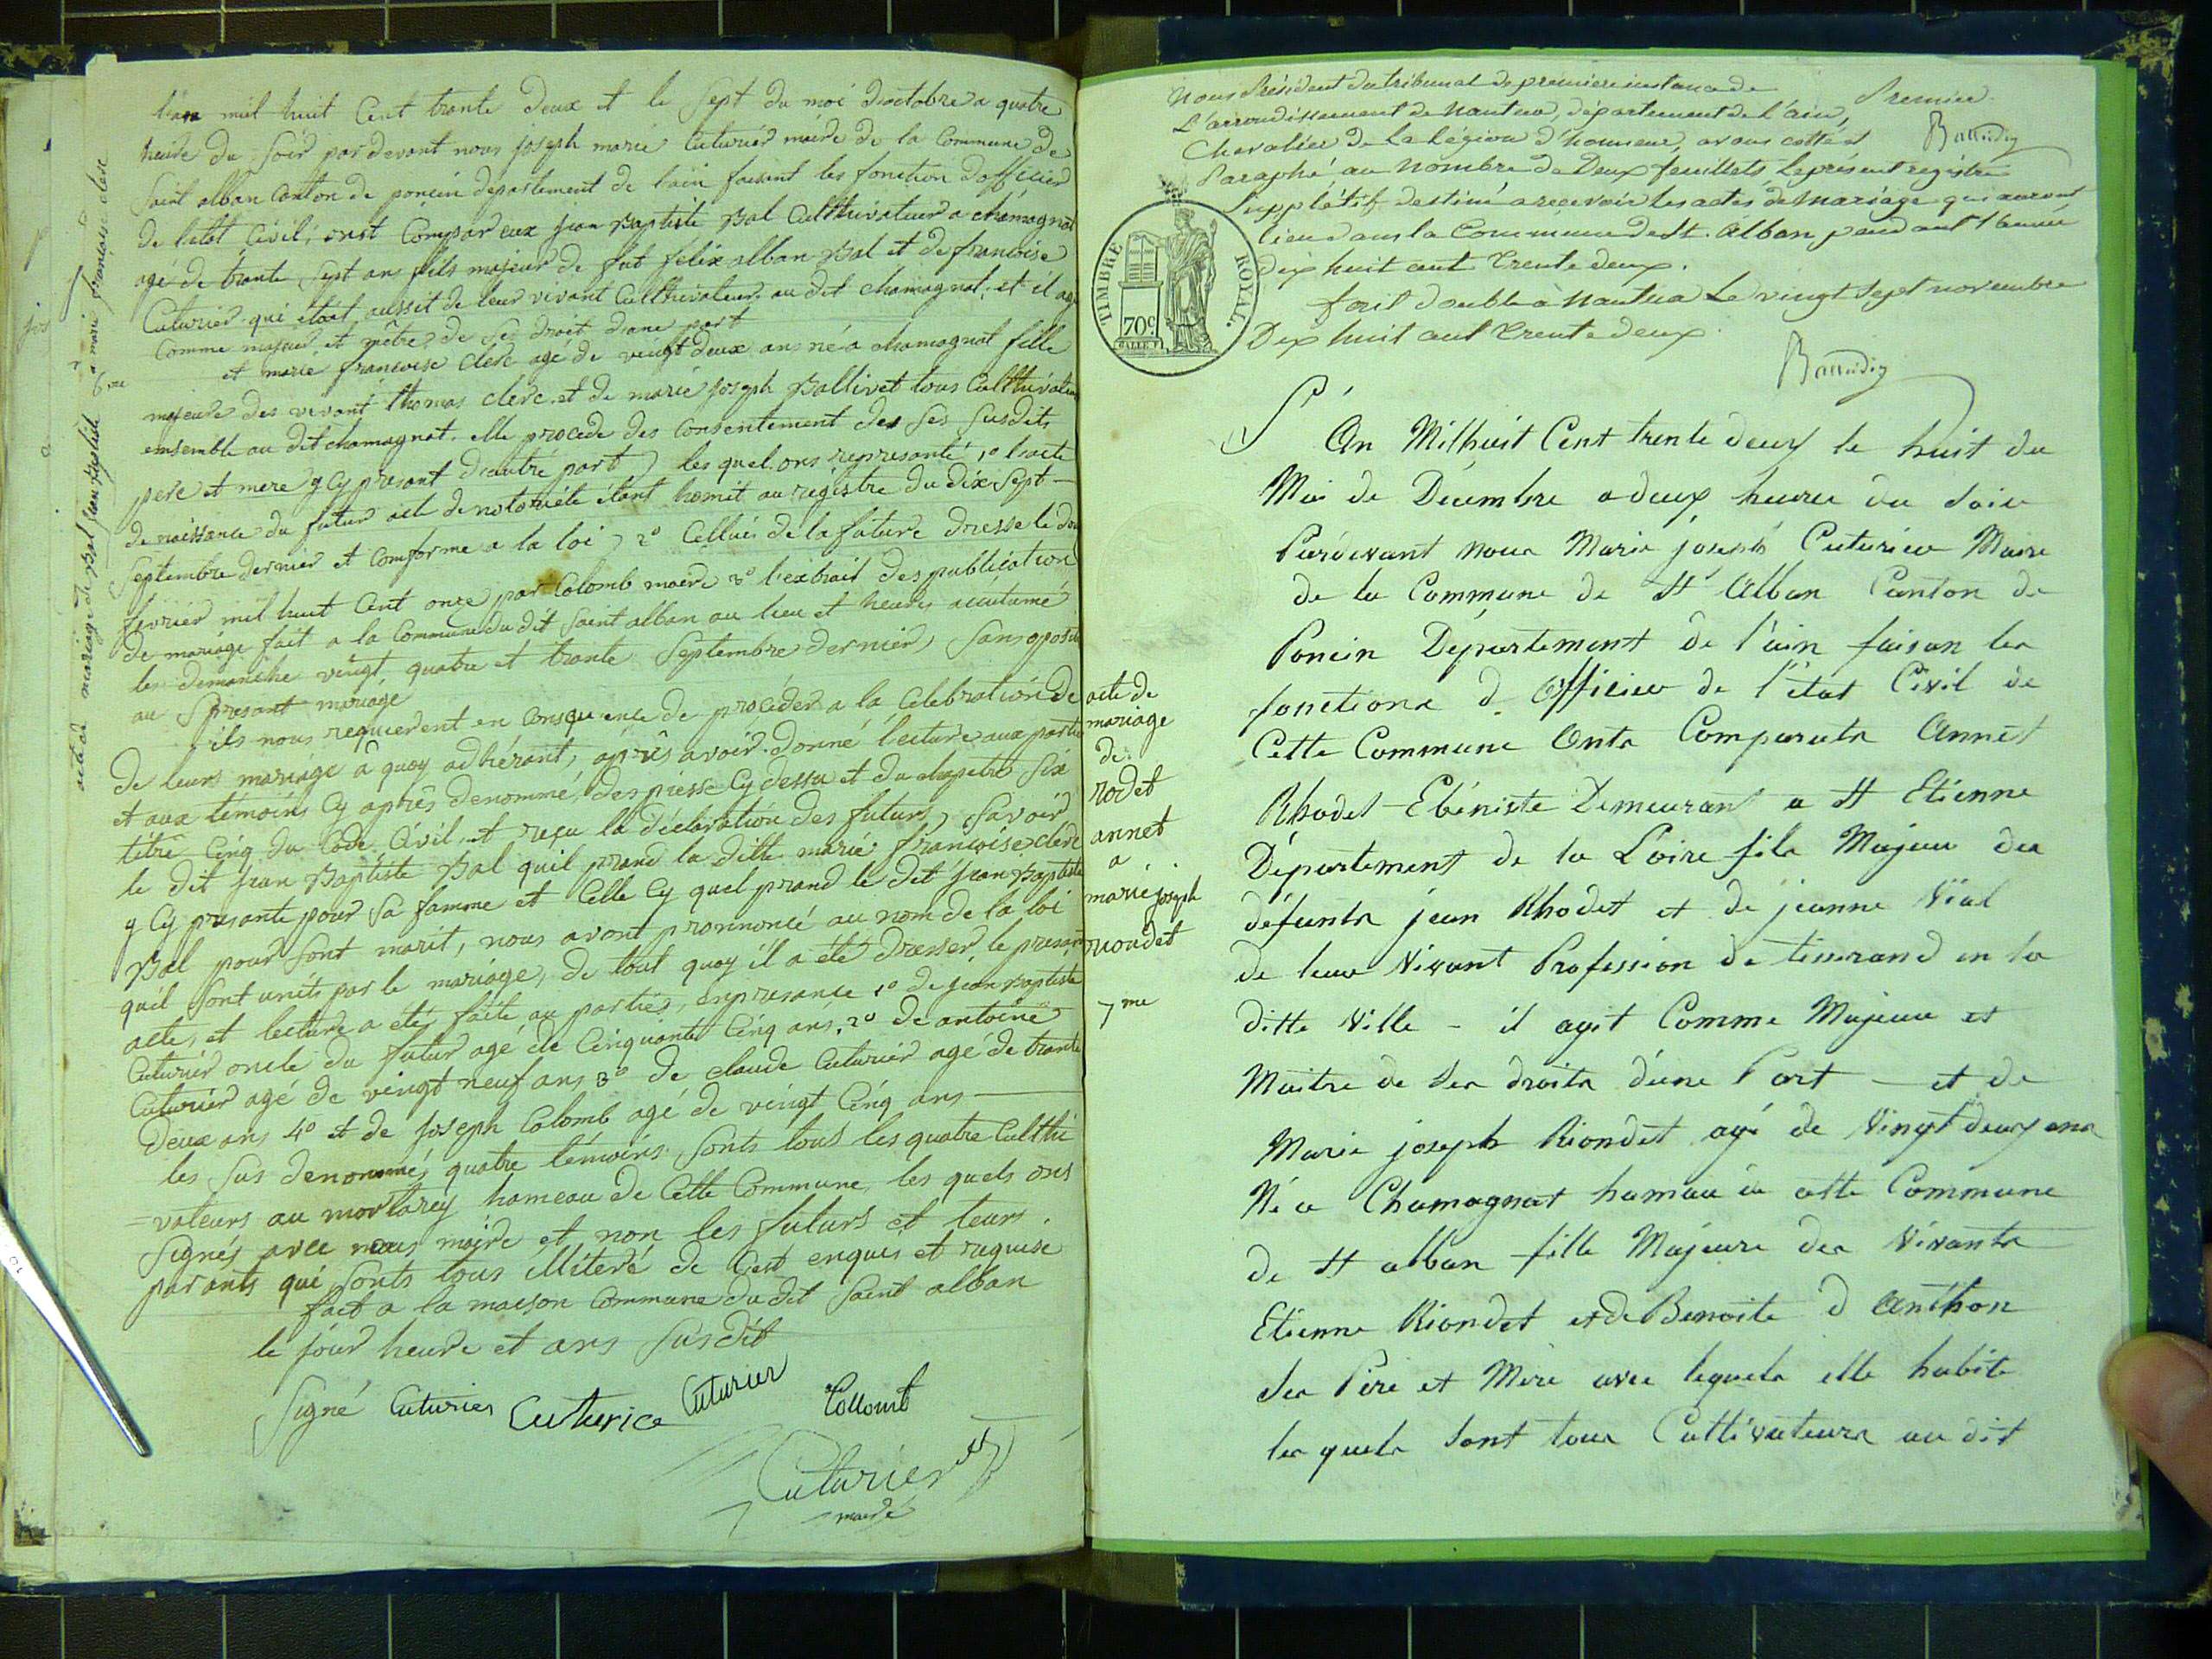 acte de mariage de Bal jean baptiste a marie françoise clerc
6me
l'an mil huit Cent trante deux et le Sept du moi doctobre a quatre
heure du soir par devant nous joseph marie Cuturier maire de la Commune de
Saint alban Canton de poncin département de lain faisant les fonction dofficier
de letat Civil, onst Compar eux jean Baptiste Bal Cultthivateur a chamagnat
agé de trante Sept ans fils majeur de fut felix alban Bal et de francoise
Cuturier qui étoit aussit de leur vivant Cultthivateur au dit chamagnat, et il agi
Comme majeur et mêtre de Ses droit d'une part
et marie francoise clerc agé de veingt deux ans né a chamagnat fille
majeure des vivant thomas clerc et de marie joseph Ballivet tous Cultthivateur
ensemble au dit chamagnat. elle procede des Consentement des Ses Susdits
pere et mere y Cy présant d'autre part) les quel ons représanté, 1º l'acte
de naissance du futur act de notoriété étant homit au régistre du dix Sept
Septembre dernier et Comforme a la loi, 2º Cellui de la future dresse le dou
fevrier mil huit Cent onze par Colomb maire 3º l'extrait des publication
de mariage fait a la Commune du dit Saint alban au lieu et heures acutumé
les dimanche veingt quatre et trante Septembre dernier, Sans oposition
au présant mariage
ils nous requierent en Consequence de procéder a la Celebration de
de leurs mariage a quoy adhérant, après avoir donné lecture aux partie
et aux témoins Cy après denommé, des piesse Cy dessu et du chapitre Six
titre Cinq du Code Civil, et reçu la déclaration des futurs, Savoir
le dit jean Baptiste Bal quil prand la ditte marie francoise clerc
y Cy presante pour Sa famme et Celle Cy quel prand le dit jean Baptiste
Bal pour Sont marit, nous avont pronnoncé au nom de la loi
quil Sont units par le mariage, de tout quoy il a été Dresser le presant
acte, et lecture a étéy faite au parties, en presance 1º de jean Baptiste
Cuturier oncle du futur agé de Cinquante Cinq ans, 2º de antoine
Cuturier agé de veingt neuf ans 3º de claude Cuturier agé de trante
Deux ans 4º et de joseph Colomb agé de veingt Cinq ans
les Sus denommés quatre témoins Sonts tous les quatre Cultthi
vateurs au mortarey hameau de Cette Commune, les quels ons
Signés avec nous maire et non les futurs et leurs
parants qui Sonts tous illiteré de Cest enquis et requise
fait a la maison Commune du dit Saint alban
le jour heure et ans Susdit
Signé Cuturier Cuturier Cuturier Collomb
Cuturier
maire
Nous Président du tribunal de première instance de
L'arrondissement de Nantua, département de l'ain,
Chevalier de la Légion d'honneur, avons cotté et
Paraphé au nombre de Deux feuillets le présent registre
Supplétif destiné a recevoir les actes de Mariage qui auront
lieu dans la Commune de St. Alban pendant l'année
dix huit cent trente deux.
fait double à Nantua le vingt Sept novembre
Dix huit cent trente deux
Premier.
TIMBRE ROYAL.
70c
acte de
mariage
de
rodet
annet
a
marie joseph
riondet
7me
L'An Mil huit Cent trente deux le huit du
Moi de Décembre a deux heures du Soir
Pardevant nous Marie joseph Cuturier Maire
de la Commune de St Alban Canton de
Poncin Département de l'ain faisan les
fonctions d Officier de l'état Civil de
Cette Commune Onts Comparuts Annet
Rhodet Ebéniste Demeurant a St Etienne
Département de la Loire fils Majeur des
défunts jean Rhodet et de jeanne Vial
de leur Vivant Profession de tisserand en la
ditte Ville – il agit Comme Majeur et
Maitre de Ses droits d'une Part – et de
Marie joseph Riondet agé de Vingt deux ans
Né a Chamagnat hamau de cette Commune
de St alban fille Majeure des Vivants
Etienne Riondet et de Benoite d Anthon
Ses Père et Mère avec lequels elle habite
les quels Sont tous Cultivateurs au dit